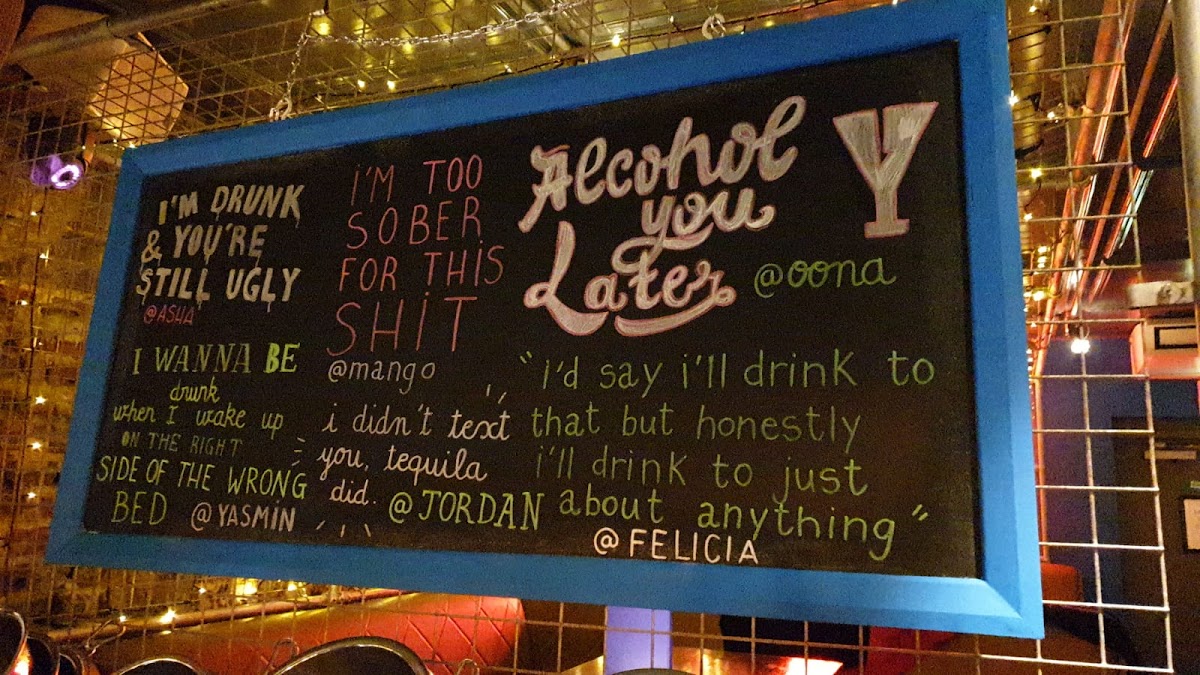 I'M DRUNK
& YOU'RE
STILL UGLY
@ASHA
I'M TOO
SOBER
FOR THIS
SHIT
@mango
Alcohol
you
Later
@oona
Y
I WANNA BE
drunk
when I wake up
ON THE RIGHT
SIDE OF THE WRONG
BED @YASMIN
i didn't text
you, tequila
did. @JORDAN
"i'd say i'll drink to
that but honestly
i'll drink to just
about anything"
@FELICIA